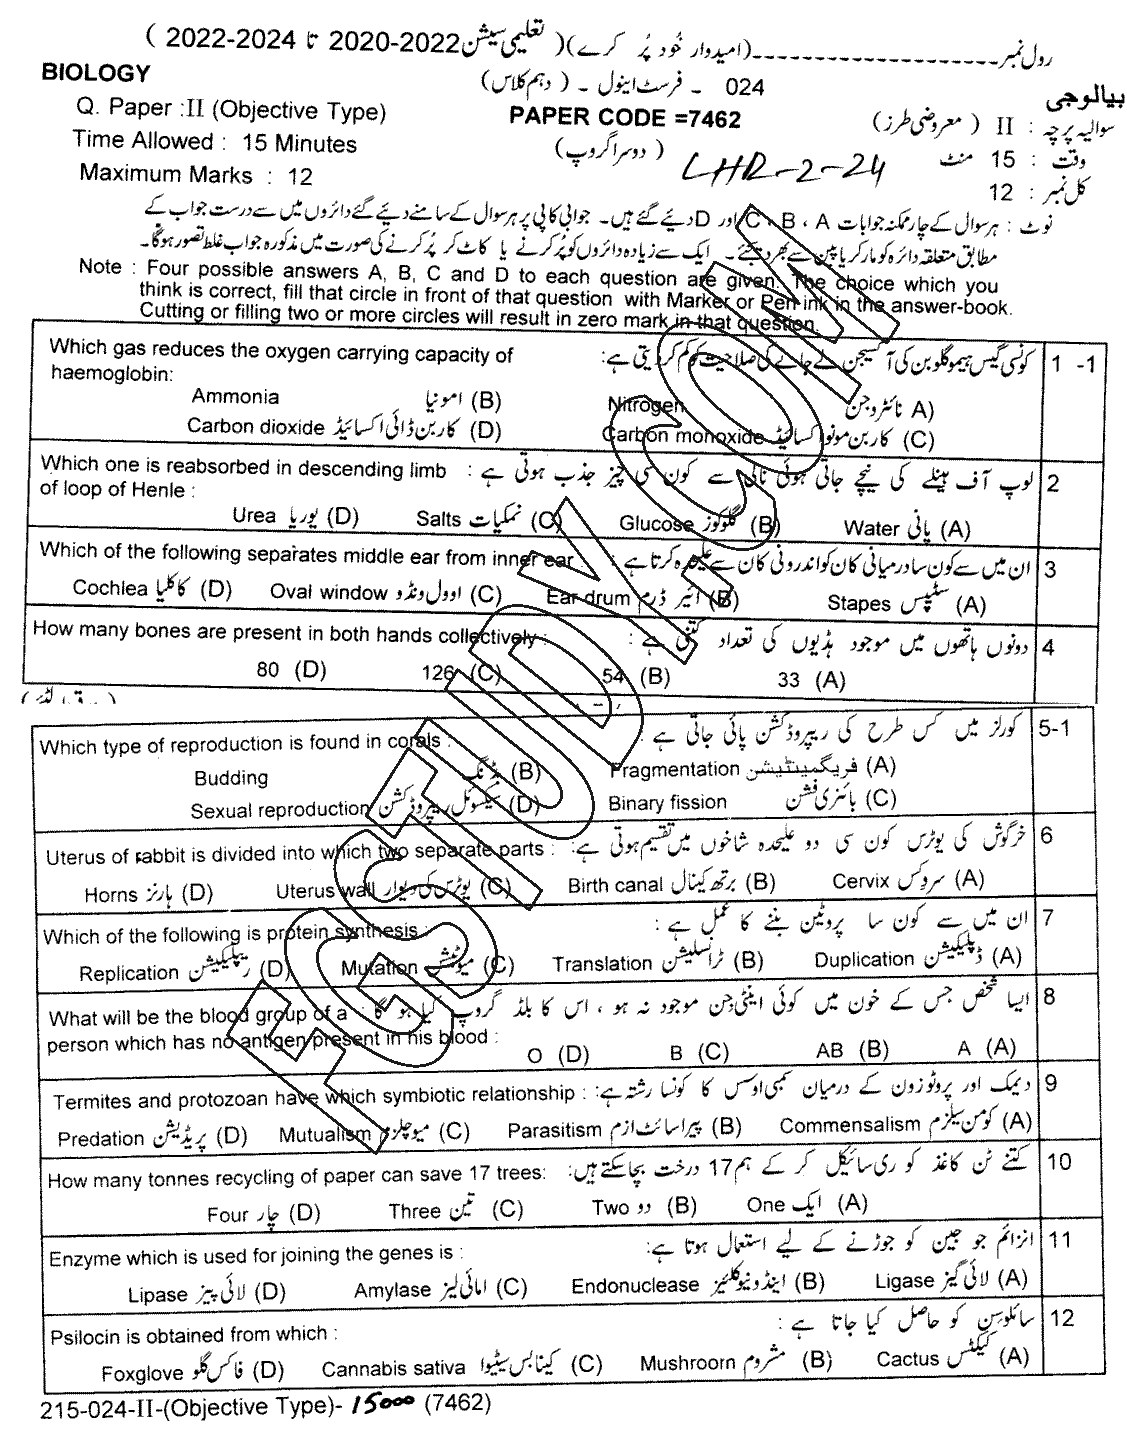 رول نمبر---------------------(امیدوار خود پُر کرے)( تعلیمی سیشن 2022-2020 تا 2024-2022 )
BIOLOGY 024 ۔ فرسٹ اینول ۔ (دہم کلاس) بیالوجی
Q. Paper :II (Objective Type) PAPER CODE =7462 سوالیہ پرچہ : II (معروضی طرز)
Time Allowed : 15 Minutes (دوسرا گروپ) LHR-2-24 وقت : 15 منٹ
Maximum Marks : 12 کل نمبر : 12
نوٹ : ہر سوال کے چار ممکنہ جوابات A ، B ، C اور D دیئے گئے ہیں۔ جوابی کاپی پر ہر سوال کے سامنے دیئے گئے دائروں میں سے درست جواب کے
مطابق متعلقہ دائرہ کو مارکر یا پین سے بھر دیجئے۔ ایک سے زیادہ دائروں کو پُر کرنے یا کاٹ کر پُر کرنے کی صورت میں مذکورہ جواب غلط تصور ہوگا۔
Note : Four possible answers A, B, C and D to each question are given. The choice which you
think is correct, fill that circle in front of that question with Marker or Pen ink in the answer-book.
Cutting or filling two or more circles will result in zero mark in that question.
Which gas reduces the oxygen carrying capacity of کونسی گیس ہیموگلوبن کی آکسیجن لے جانے کی صلاحیت کو کم کر دیتی ہے: 1 -1
haemoglobin:
Ammonia امونیا (B) Nitrogen نائٹروجن (A
Carbon dioxide کاربن ڈائی آکسائیڈ (D) Carbon monoxide کاربن مونو آکسائیڈ (C)
Which one is reabsorbed in descending limb لوپ آف ہینلے کی نیچے جاتی ہوئی نالی سے کون سی چیز جذب ہوتی ہے : 2
of loop of Henle :
Urea یوریا (D) Salts نمکیات (C) Glucose گلوکوز (B) Water پانی (A)
Which of the following separates middle ear from inner ear : ان میں سے کون سا درمیانی کان کو اندرونی کان سے علیحدہ کرتا ہے : 3
Cochlea کاکلیا (D) Oval window اوول ونڈو (C) Ear drum ائیر ڈرم (B) Stapes سٹیپس (A)
How many bones are present in both hands collectively : دونوں ہاتھوں میں موجود ہڈیوں کی تعداد کتنی ہے : 4
80 (D) 126 (C) 54 (B) 33 (A)
Which type of reproduction is found in corals : کورلز میں کس طرح کی ریپروڈکشن پائی جاتی ہے : 5-1
Budding بڈنگ (B) Fragmentation فریگمینٹیشن (A)
Sexual reproduction سیکسوئل ریپروڈکشن (D) Binary fission بائنری فشن (C)
Uterus of rabbit is divided into which two separate parts : خرگوش کی یوٹرس کون سی دو علیحدہ شاخوں میں تقسیم ہوتی ہے: 6
Horns ہارنز (D) Uterus wall یوٹرس کی دیوار (C) Birth canal برتھ کینال (B) Cervix سروکس (A)
Which of the following is protein synthesis : ان میں سے کون سا پروٹین بننے کا عمل ہے : 7
Replication ریپلیکیشن (D) Mutation میوٹیشن (C) Translation ٹرانسلیشن (B) Duplication ڈپلیکیشن (A)
What will be the blood group of a ایسا شخص جس کے خون میں کوئی اینٹی جن موجود نہ ہو ، اس کا بلڈ گروپ کیا ہو گا : 8
person which has no antigen present in his blood :
O (D) B (C) AB (B) A (A)
Termites and protozoan have which symbiotic relationship : دیمک اور پروٹوزون کے درمیان سمبی اوسس کا کونسا رشتہ ہے: 9
Predation پریڈیشن (D) Mutualism میوچلزم (C) Parasitism پیراسائٹ ازم (B) Commensalism کومن سیلزم (A)
How many tonnes recycling of paper can save 17 trees: کتنے ٹن کاغذ کو ری سائیکل کر کے ہم 17 درخت بچا سکتے ہیں: 10
Four چار (D) Three تین (C) Two دو (B) One ایک (A)
Enzyme which is used for joining the genes is : انزائم جو جین کو جوڑنے کے لیے استعمال ہوتا ہے: 11
Lipase لائی پیز (D) Amylase امائی لیز (C) Endonuclease اینڈونیوکلئیز (B) Ligase لائی گیز (A)
Psilocin is obtained from which : سائلوسن کو حاصل کیا جاتا ہے : 12
Foxglove فاکس گلو (D) Cannabis sativa کینابس سیٹیوا (C) Mushroorn مشروم (B) Cactus کیکٹس (A)
215-024-II-(Objective Type)- 15000 (7462)
FGSTUDY.COM